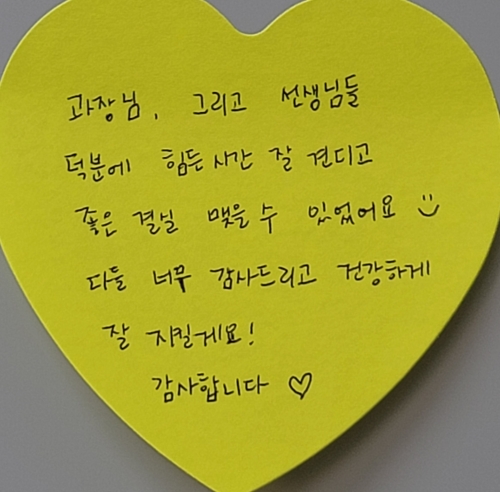 과장님, 그리고 선생님들
덕분에 힘든시간 잘 견디고
좋은 결실 맺을 수 있었어요 :)
다들 너무 감사드리고 건강하게
잘 지킬게요!
감사합니다 ♡